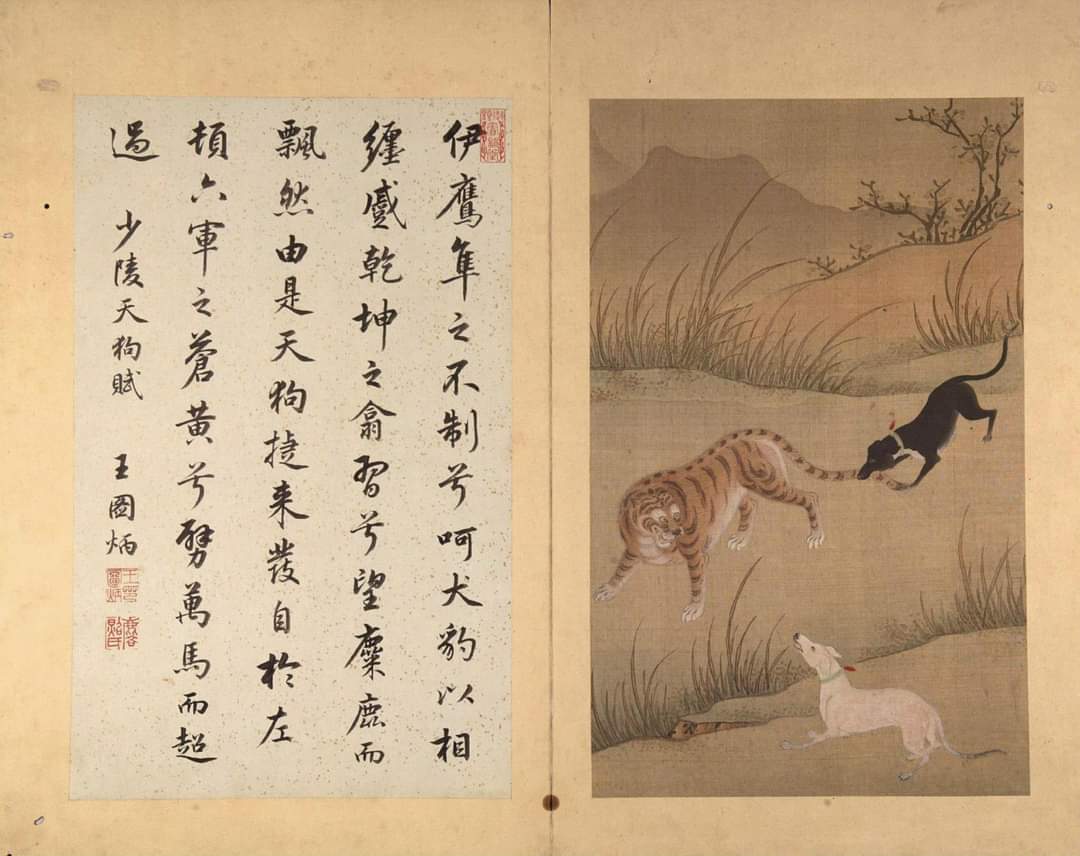 伊鷹隼之不制兮呵犬豹以相
纏蹙乾坤之翕習兮望麋鹿而
飄然由是天狗捷来發自於左
頓六軍之蒼黄兮劈萬馬而超
過
少陵天狗賦 王圖炳